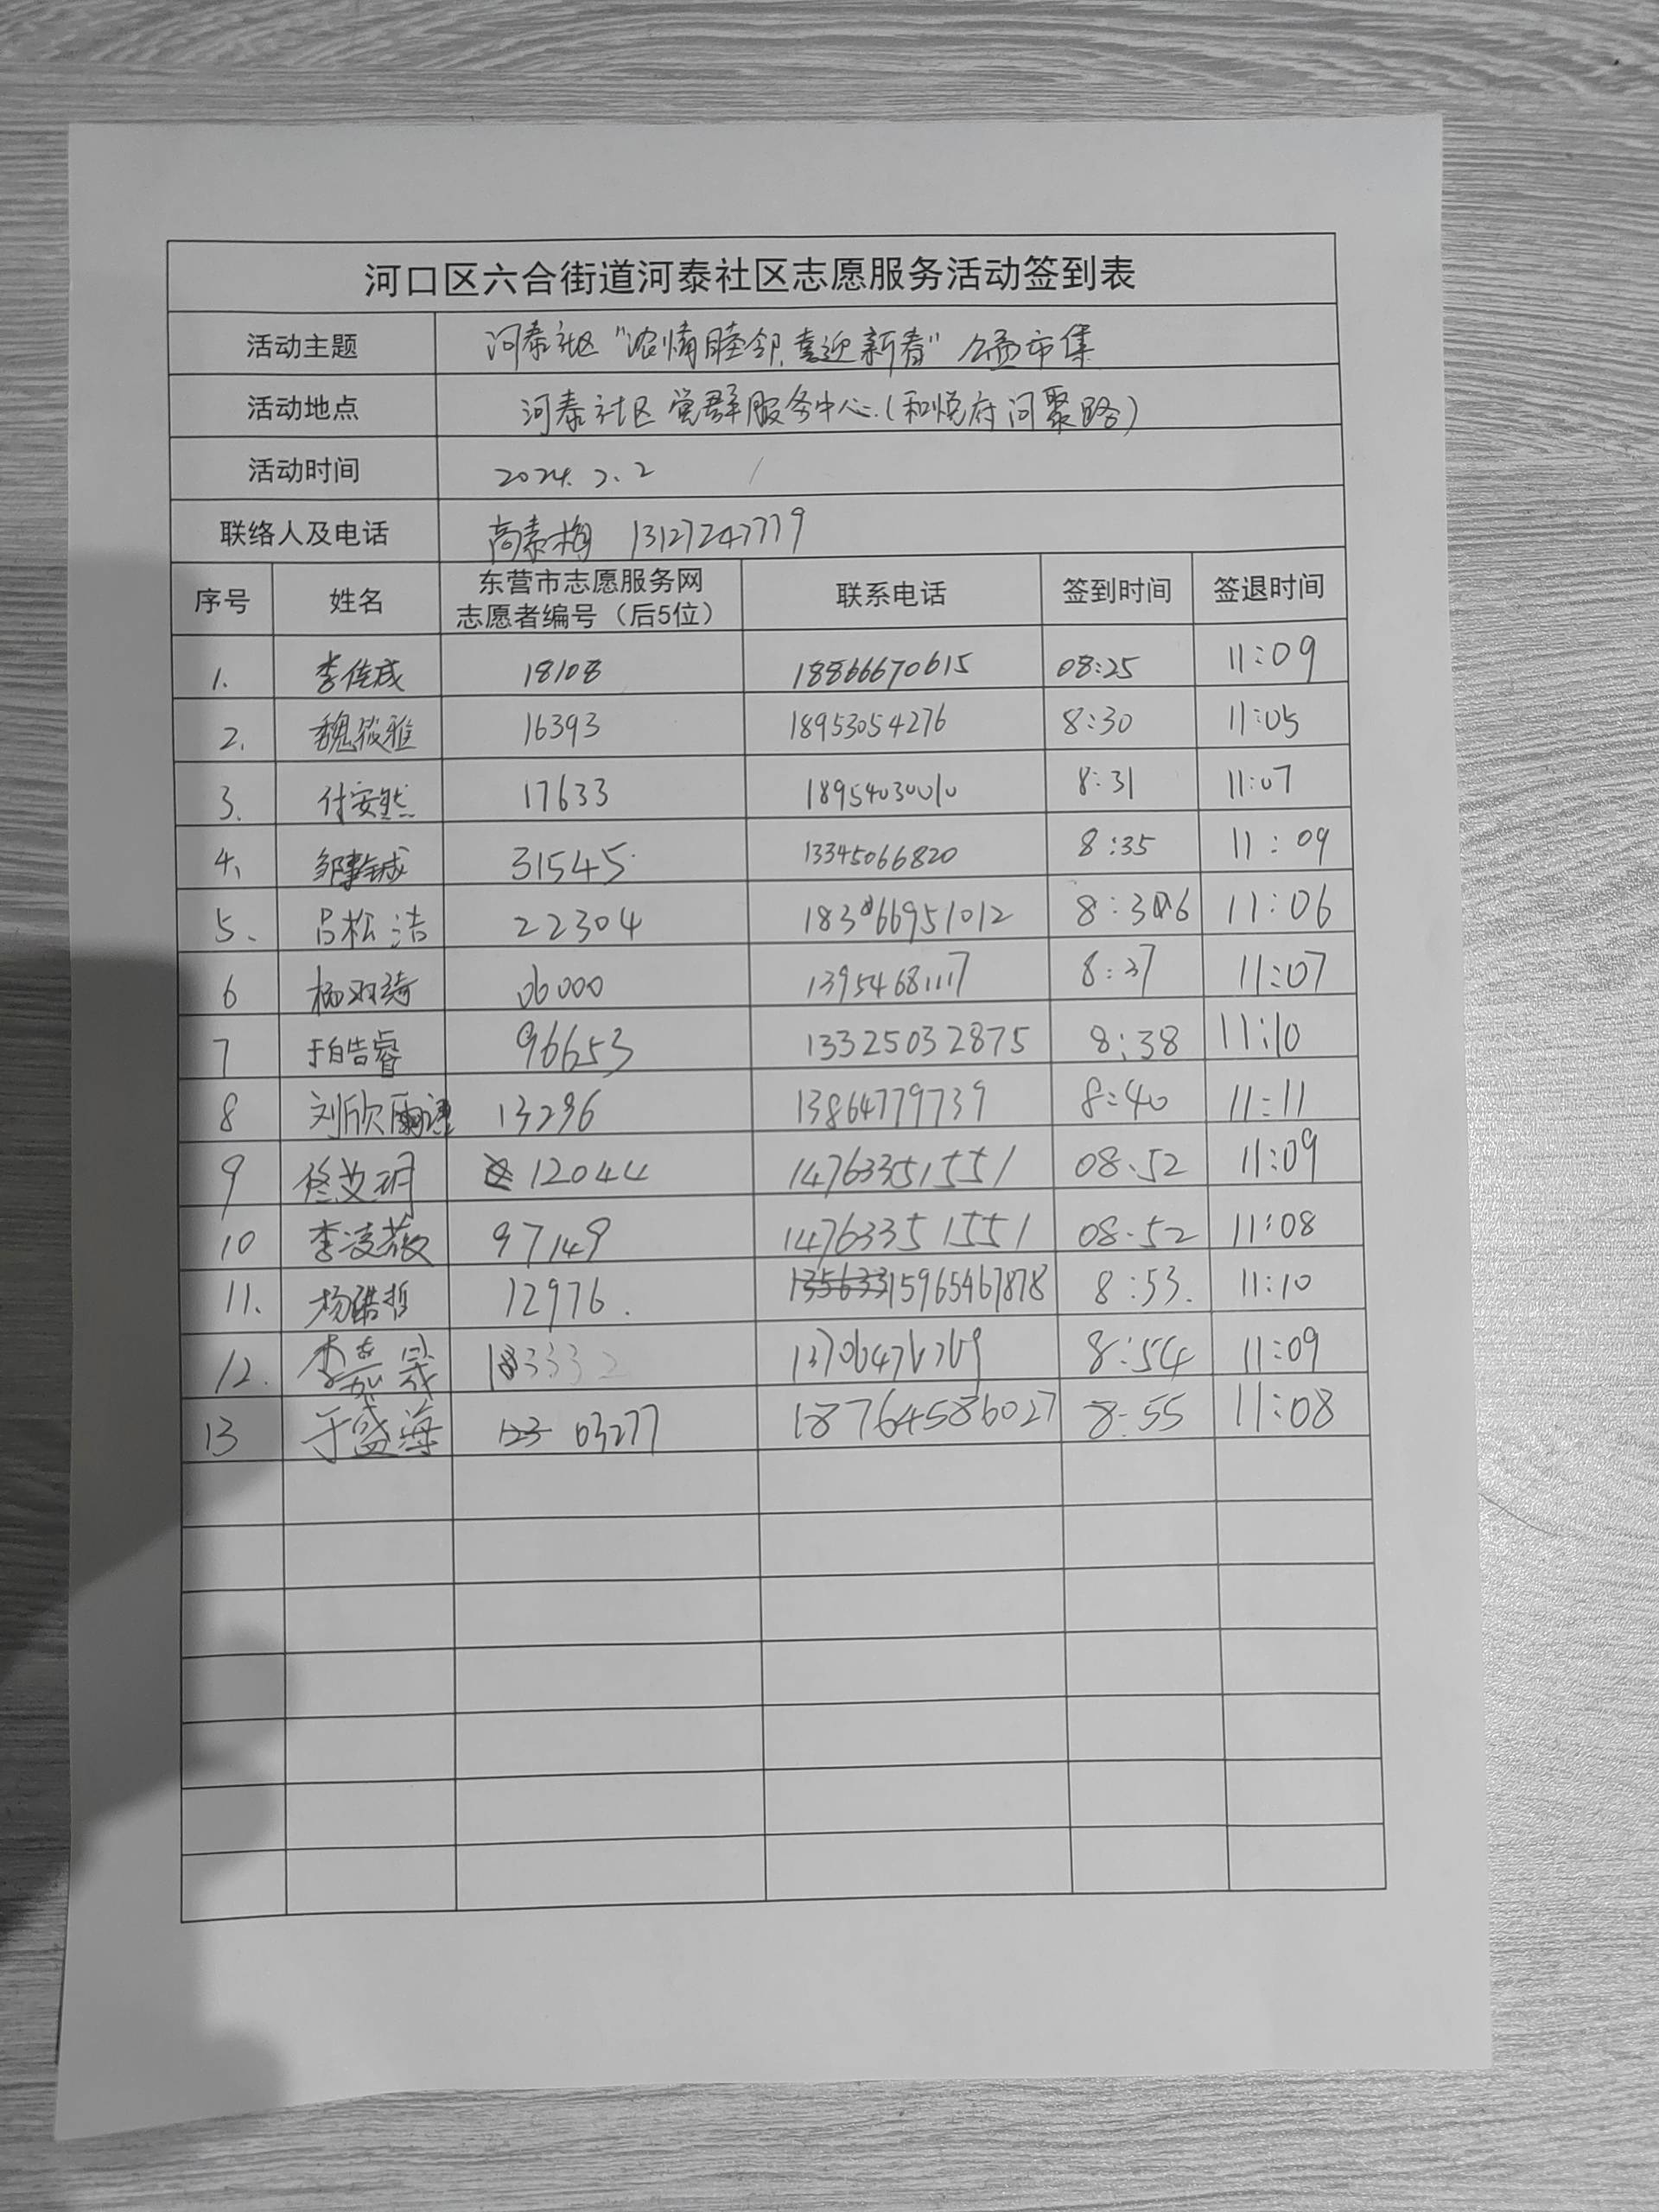 河口区六合街道河泰社区志愿服务活动签到表
活动主题 河泰社区“浓情睦邻,喜迎新春”公益市集
活动地点 河泰社区党群服务中心.(和悦府问聚路)
活动时间 2024. 2. 2
联络人及电话 高素梅 13127247779
序号 姓名 东营市志愿服务网志愿者编号（后5位） 联系电话 签到时间 签退时间
1. 李佳成 18108 18866670615 08:25 11:09
2. 魏筱雅 16393 18953054276 8:30 11:05
3. 付安然 17633 18954030010 8:31 11:07
4、 31545 13345066820 8:35 11:09
5、 吕松洁 22304 18366951012 8:36 11:06
6 杨双琦 06000 13954681117 8:37 11:07
7 于皓睿 96653 13325032875 8:38 11:10
8 刘欣雨 13296 13864779739 8:40 11:11
9 佟艾玥 12044 14763351551 08:52 11:09
10 李凌薇 97149 14763351551 08:52 11:08
11. 杨皓哲 12976. 15965467878 8:53. 11:10
12. 李嘉晟 13332 8:54 11:09
13 于盛海 03277 18764586027 8:55 11:08